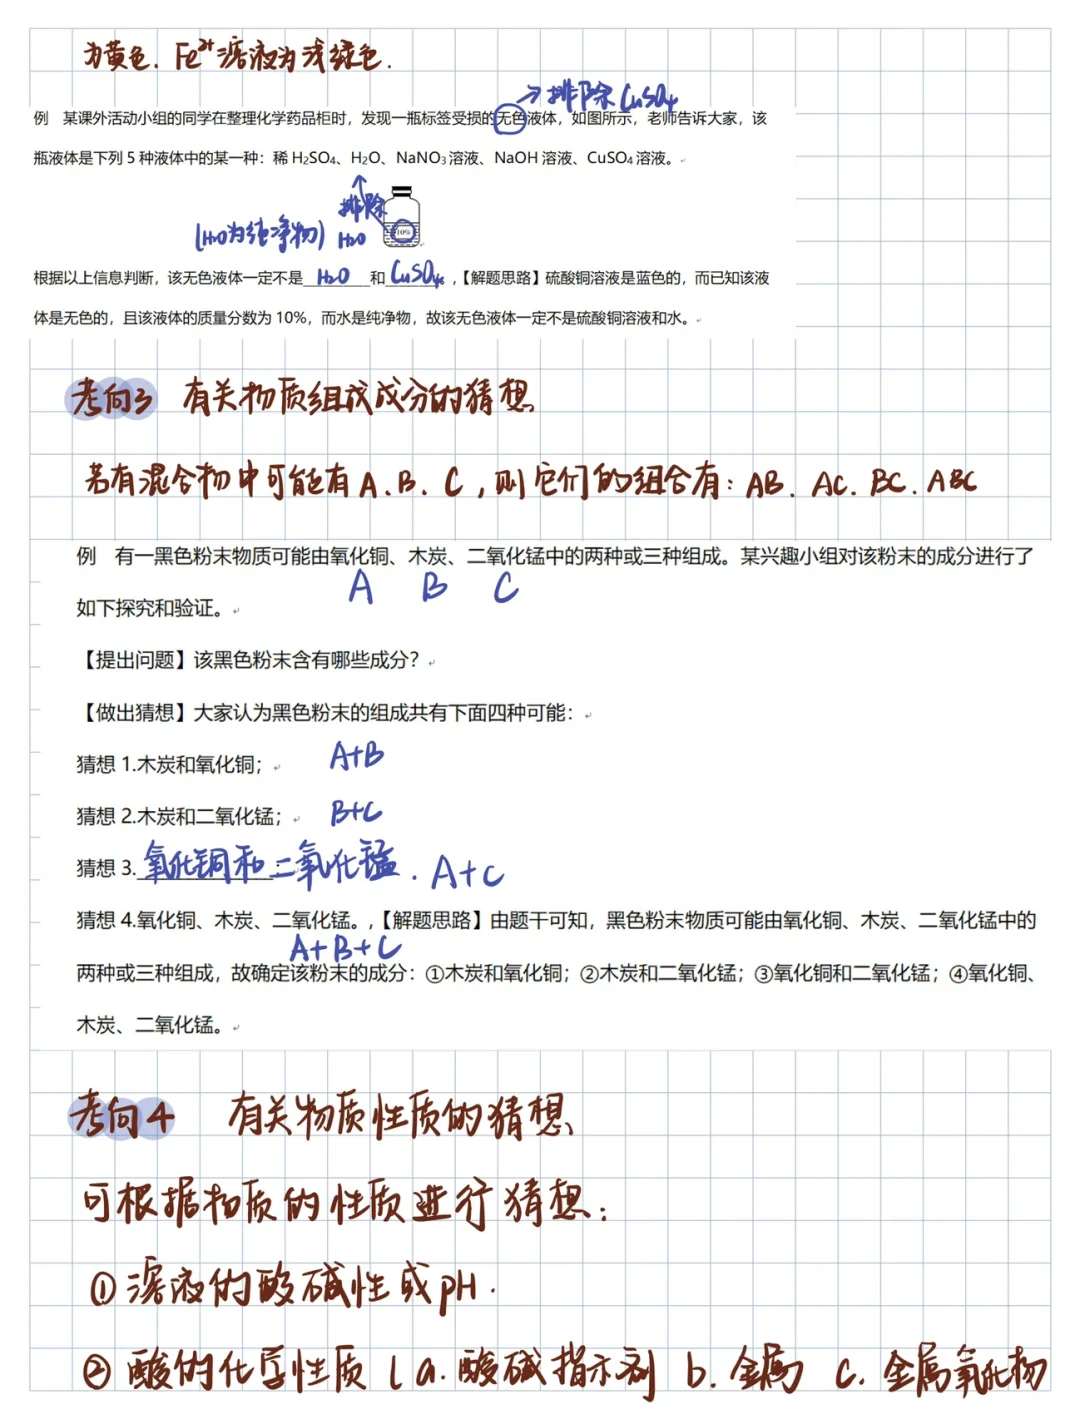 为黄色. Fe²⁺溶液为浅绿色.
→排除CuSO₄
例 某课外活动小组的同学在整理化学药品柜时，发现一瓶标签受损的无色液体，如图所示，老师告诉大家，该
瓶液体是下列5种液体中的某一种：稀H₂SO₄、H₂O、NaNO₃溶液、NaOH溶液、CuSO₄溶液。
排除
(H₂O为纯净物) H₂O
10%
根据以上信息判断，该无色液体一定不是 H₂O 和 CuSO₄ ,【解题思路】硫酸铜溶液是蓝色的，而已知该液
体是无色的，且该液体的质量分数为10%，而水是纯净物，故该无色液体一定不是硫酸铜溶液和水。
考向3 有关物质组成成分的猜想
若有混合物中可能有A.B.C,则它们的组合有：AB. AC. BC. ABC
例 有一黑色粉末物质可能由氧化铜、木炭、二氧化锰中的两种或三种组成。某兴趣小组对该粉末的成分进行了
A B C
如下探究和验证。
【提出问题】该黑色粉末含有哪些成分？
【做出猜想】大家认为黑色粉末的组成共有下面四种可能：
猜想1.木炭和氧化铜； A+B
猜想2.木炭和二氧化锰； B+C
猜想3.氧化铜和二氧化锰. A+C
猜想4.氧化铜、木炭、二氧化锰。,【解题思路】由题干可知，黑色粉末物质可能由氧化铜、木炭、二氧化锰中的
A+B+C
两种或三种组成，故确定该粉末的成分：①木炭和氧化铜；②木炭和二氧化锰；③氧化铜和二氧化锰；④氧化铜、
木炭、二氧化锰。
考向4 有关物质性质的猜想
可根据物质的性质进行猜想：
①溶液的酸碱性或pH.
②酸的化学性质(a.酸碱指示剂 b.金属 c.金属氧化物